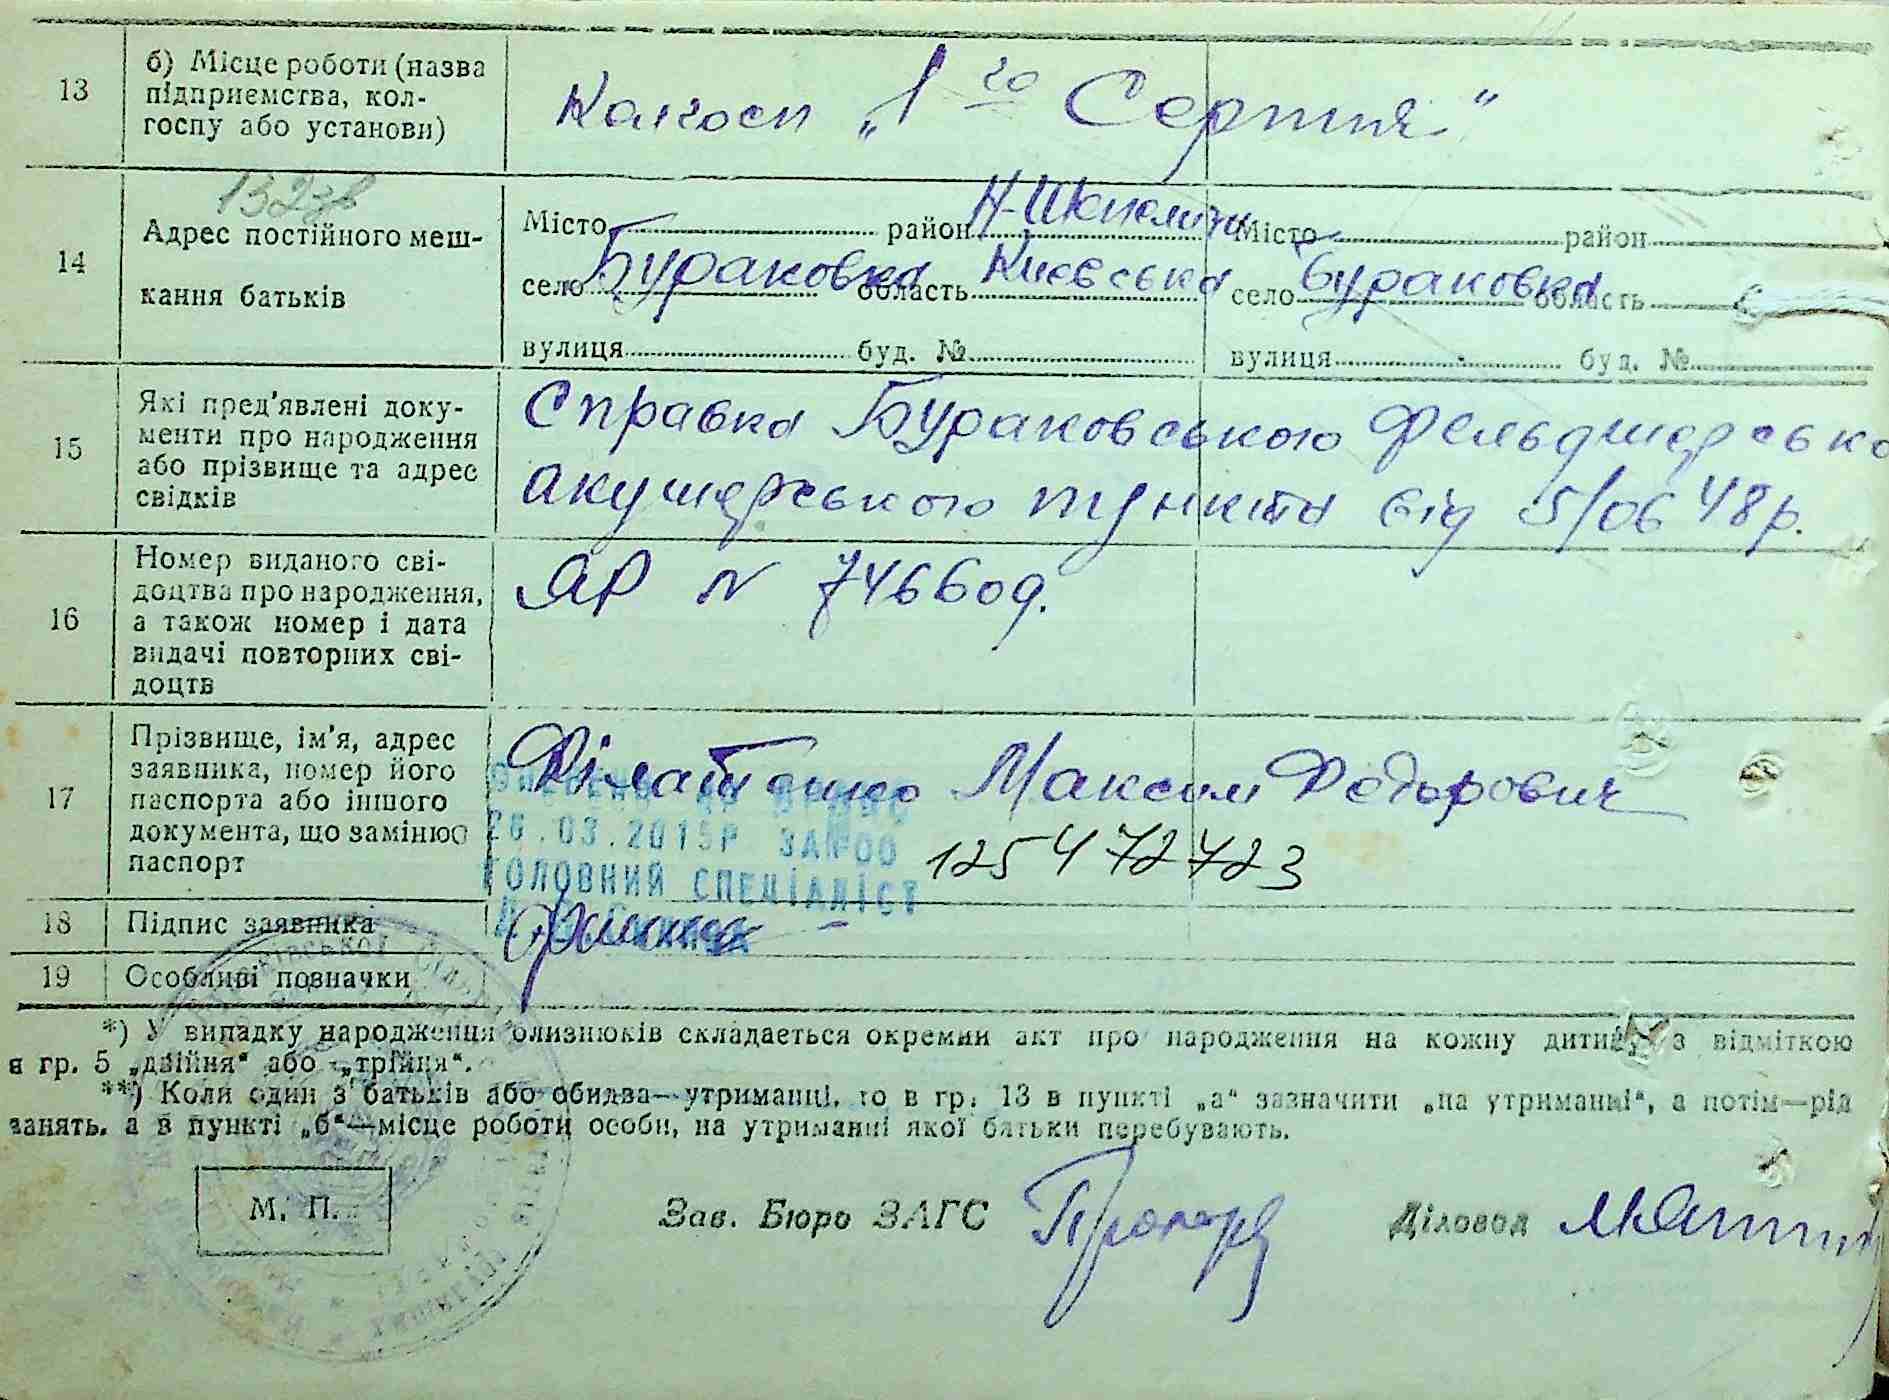 13
б) Місце роботи (назва
підприємства, кол-
госпу або установи)
Колгосп „1го Серпня"
132зв
14
Адрес постійного меш-
кання батьків
Місто район Н-Шепеличі Місто район
село Бураковка область Киевська село Бураковка область
вулиця буд. № вулиця буд. №
15
Які пред'явлені доку-
менти про народження
або прізвище та адрес
свідків
Справка Бураковського Фельдшерсько
акушерського пункта від 5/06 48р.
16
Номер виданого сві-
доцтва про народження,
а також номер і дата
видачі повторних сві-
доцтв
ЯР N 746609.
17
Прізвище, ім'я, адрес
заявника, номер його
паспорта або іншого
документа, що замінює
паспорт
Філатенко Максим Федорович
26.03.2015Р
125472723
ГОЛОВНИЙ СПЕЦІАЛІСТ
18 Підпис заявника
19 Особливі позначки
*) У випадку народження близнюків складається окремий акт про народження на кожну дитину, з відміткою
в гр. 5 „двійня" або „трійня".
**) Коли один з батьків або обидва—утриманці, то в гр. 13 в пункті „а" зазначити „на утриманні", а потім—рід
занять, а в пункті „б"—місце роботи особи, на утриманні якої батьки перебувають.
М. П. Зав. Бюро ЗАГС Діловод